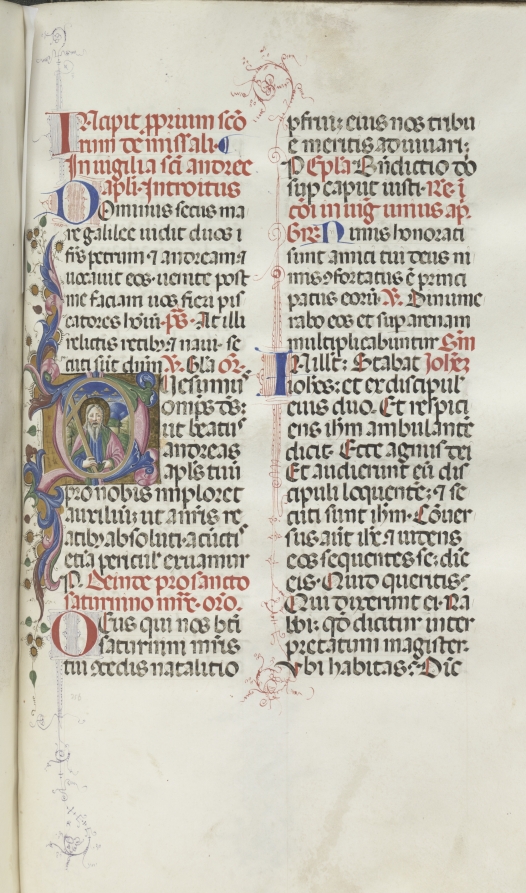 Incipit ꝓprium scõ
rum de missali.
In uigilia scĩ andree
apłi. Introitus
Dominus secus ma
re galilee uidit duos f
r̃s petrum ⁊ andream ⁊
uocauit eos. uenite post
me faciam uos fieri pis
catores hoĩm. p̃s. At illi
relictis retiby ⁊ naui. se
cuti sũt dñm. ℣. Gl̃a. or̃.
Quesumus
omp̃s d̃s:
ut beatus
andreas
apl̃s tuus
pro nobis imploret
auxiliũ: ut a nr̃is re
atiby absoluti. a cũctis
etiã pericul̃ eruamur
P. Deinde pro sancto
saturnino mr̃e. or̃o.
Deus qui nos bt̃i
saturnini mr̃is
tui ↄcedis natalitio
ꝑfrui: eius nos tribu
e meritis adiuuari:
P. Epl̃a. Bñdictio dõ
sup caput iusti. Re. ĩ
cõi in uig̃ unius ap.
Gr̃. Nimis honorati
sunt amici tui deus ni
mis ↄfortatus ẽ princi
patus eorũ. ℣. Dinume
rabo eos et sup arenam
multiplicabuntur. Sc̃m
In ille: Stabat Joħẽz
ioħes: et ex discipul̃
eius duo. Et respici
ens iħm ambulantẽ
dicit. Ecce agnus dei
Et audierunt eũ dis
cipuli loquentẽ: ⁊ se
cuti sunt iħm. Cõuer
sus aũt iħs ⁊ uidens
eos sequentes se: dic̃
eis. Quid queritis?
Qui dixerunt ei. Ra
bbi. qđ dicitur inter
pretatum magister.
Vbi habitas? Dic̃